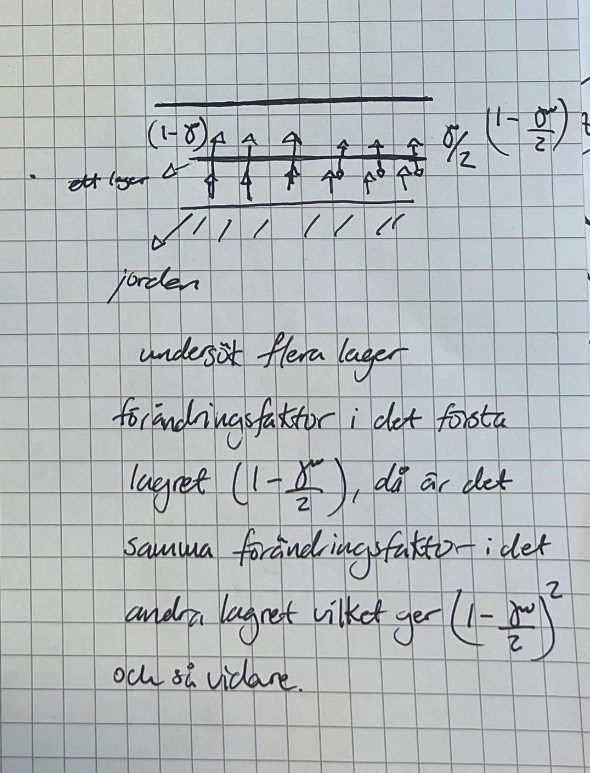 (1-γ) γ/2 (1 - γ/2)
ett lager
jorden
undersök flera lager
förändringsfaktor i det första
lagret (1 - γ/2), då är det
samma förändringsfaktor i det
andra lagret vilket ger (1 - γ/2)²
och så vidare.